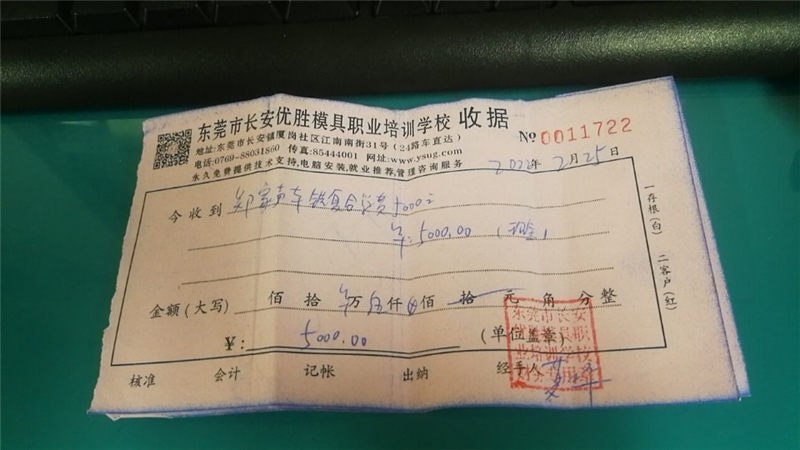 东莞市长安优胜模具职业培训学校 收据
地址:东莞市长安镇厦岗社区江南南街31号(24路车直达)
电话:0769-88031860 传真:85444001 网址:www.ysug.com
永久免费提供技术支持,电脑安装,就业推荐,管理咨询服务
№ 0011722
2022年 2月 25日
今收到 车铣复合学费5000元
¥:5000.00 (现金)
金额(大写) 佰 拾 万 伍仟 佰 拾 元 角 分 整
¥: 5000.00 (单位盖章)
核准 会计 记帐 出纳 经手人
一存根(白) 二客户(红)
东莞市长安
优胜模具职
业培训学校